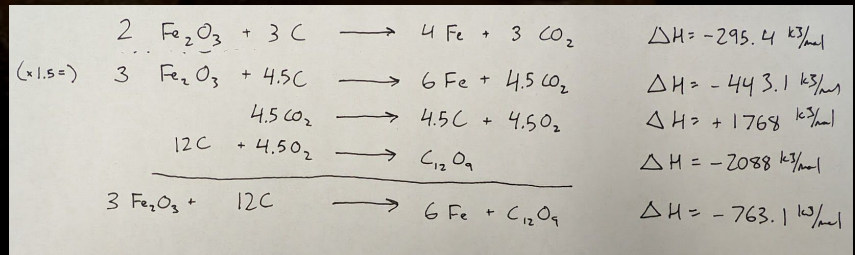 2 Fe₂O₃ + 3 C ⟶ 4 Fe + 3 CO₂ ΔH = -295.4 kJ/mol
(x1.5=) 3 Fe₂O₃ + 4.5C ⟶ 6 Fe + 4.5 CO₂ ΔH = -443.1 kJ/mol
4.5 CO₂ ⟶ 4.5C + 4.5O₂ ΔH = +1768 kJ/mol
12C + 4.5O₂ ⟶ C₁₂O₉ ΔH = -2088 kJ/mol
3 Fe₂O₃ + 12C ⟶ 6 Fe + C₁₂O₉ ΔH = -763.1 kJ/mol